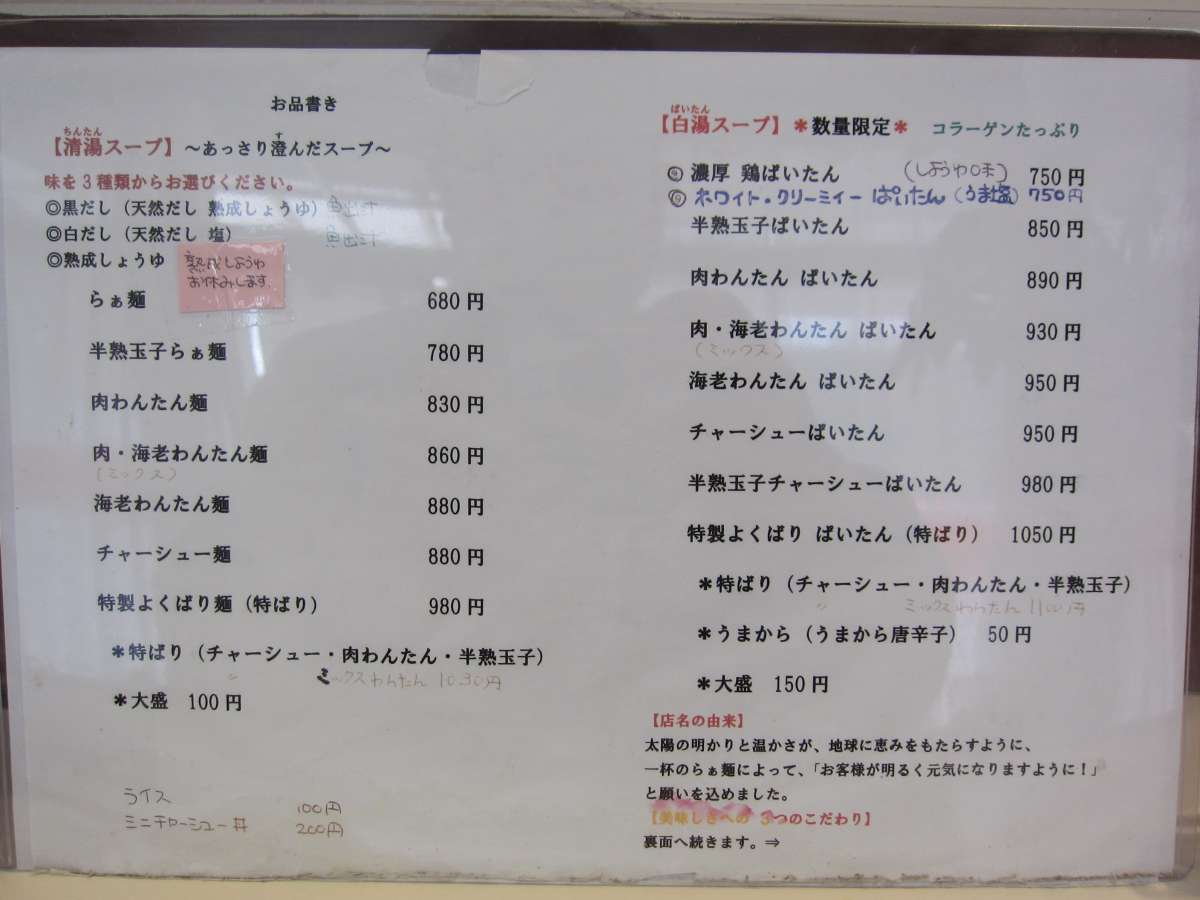 お品書き
ちんたん
【清湯スープ】～あっさり澄んだスープ～
す
味を3種類からお選びください。
◎黒だし（天然だし 熟成しょうゆ）魚出汁
◎白だし（天然だし 塩） 魚出汁
◎熟成しょうゆ
熟成しょうゆ
お休みします。
らぁ麺 680円
半熟玉子らぁ麺 780円
肉わんたん麺 830円
肉・海老わんたん麺 860円
（ミックス）
海老わんたん麺 880円
チャーシュー麺 880円
特製よくばり麺（特ばり） 980円
＊特ばり（チャーシュー・肉わんたん・半熟玉子）
〃 ミックスわんたん 1030円
＊大盛 100円
ライス 100円
ミニチャーシュー丼 200円
ぱいたん
【白湯スープ】＊数量限定＊ コラーゲンたっぷり
◎濃厚 鶏ぱいたん （しょうゆ味） 750円
◎ホワイト・クリーミィー ぱいたん（うま塩） 750円
半熟玉子ぱいたん 850円
肉わんたん ぱいたん 890円
肉・海老わんたん ぱいたん 930円
（ミックス）
海老わんたん ぱいたん 950円
チャーシューぱいたん 950円
半熟玉子チャーシューぱいたん 980円
特製よくばり ぱいたん（特ばり） 1050円
＊特ばり（チャーシュー・肉わんたん・半熟玉子）
〃 ミックスわんたん 1100円
＊うまから（うまから唐辛子） 50円
＊大盛 150円
【店名の由来】
太陽の明かりと温かさが、地球に恵みをもたらすように、
一杯のらぁ麺によって、「お客様が明るく元気になりますように！」
と願いを込めました。
【美味しさへの 3つのこだわり】
裏面へ続きます。⇒